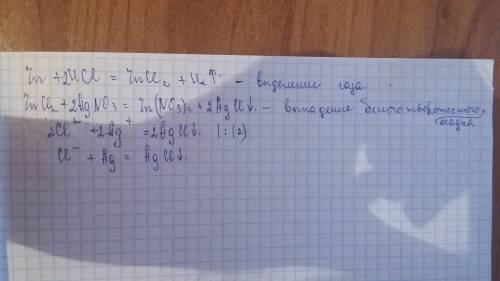 Zn + 2HCl = ZnCl₂ + H₂↑ - выделение газа.
ZnCl₂ + 2AgNO3 = Zn(NO3)₂ + 2AgCl↓ - выпадение белого творожестого осадка
2Cl⁻ + 2Ag⁺ = 2AgCl↓ | : (2)
Cl⁻ + Ag = AgCl↓.